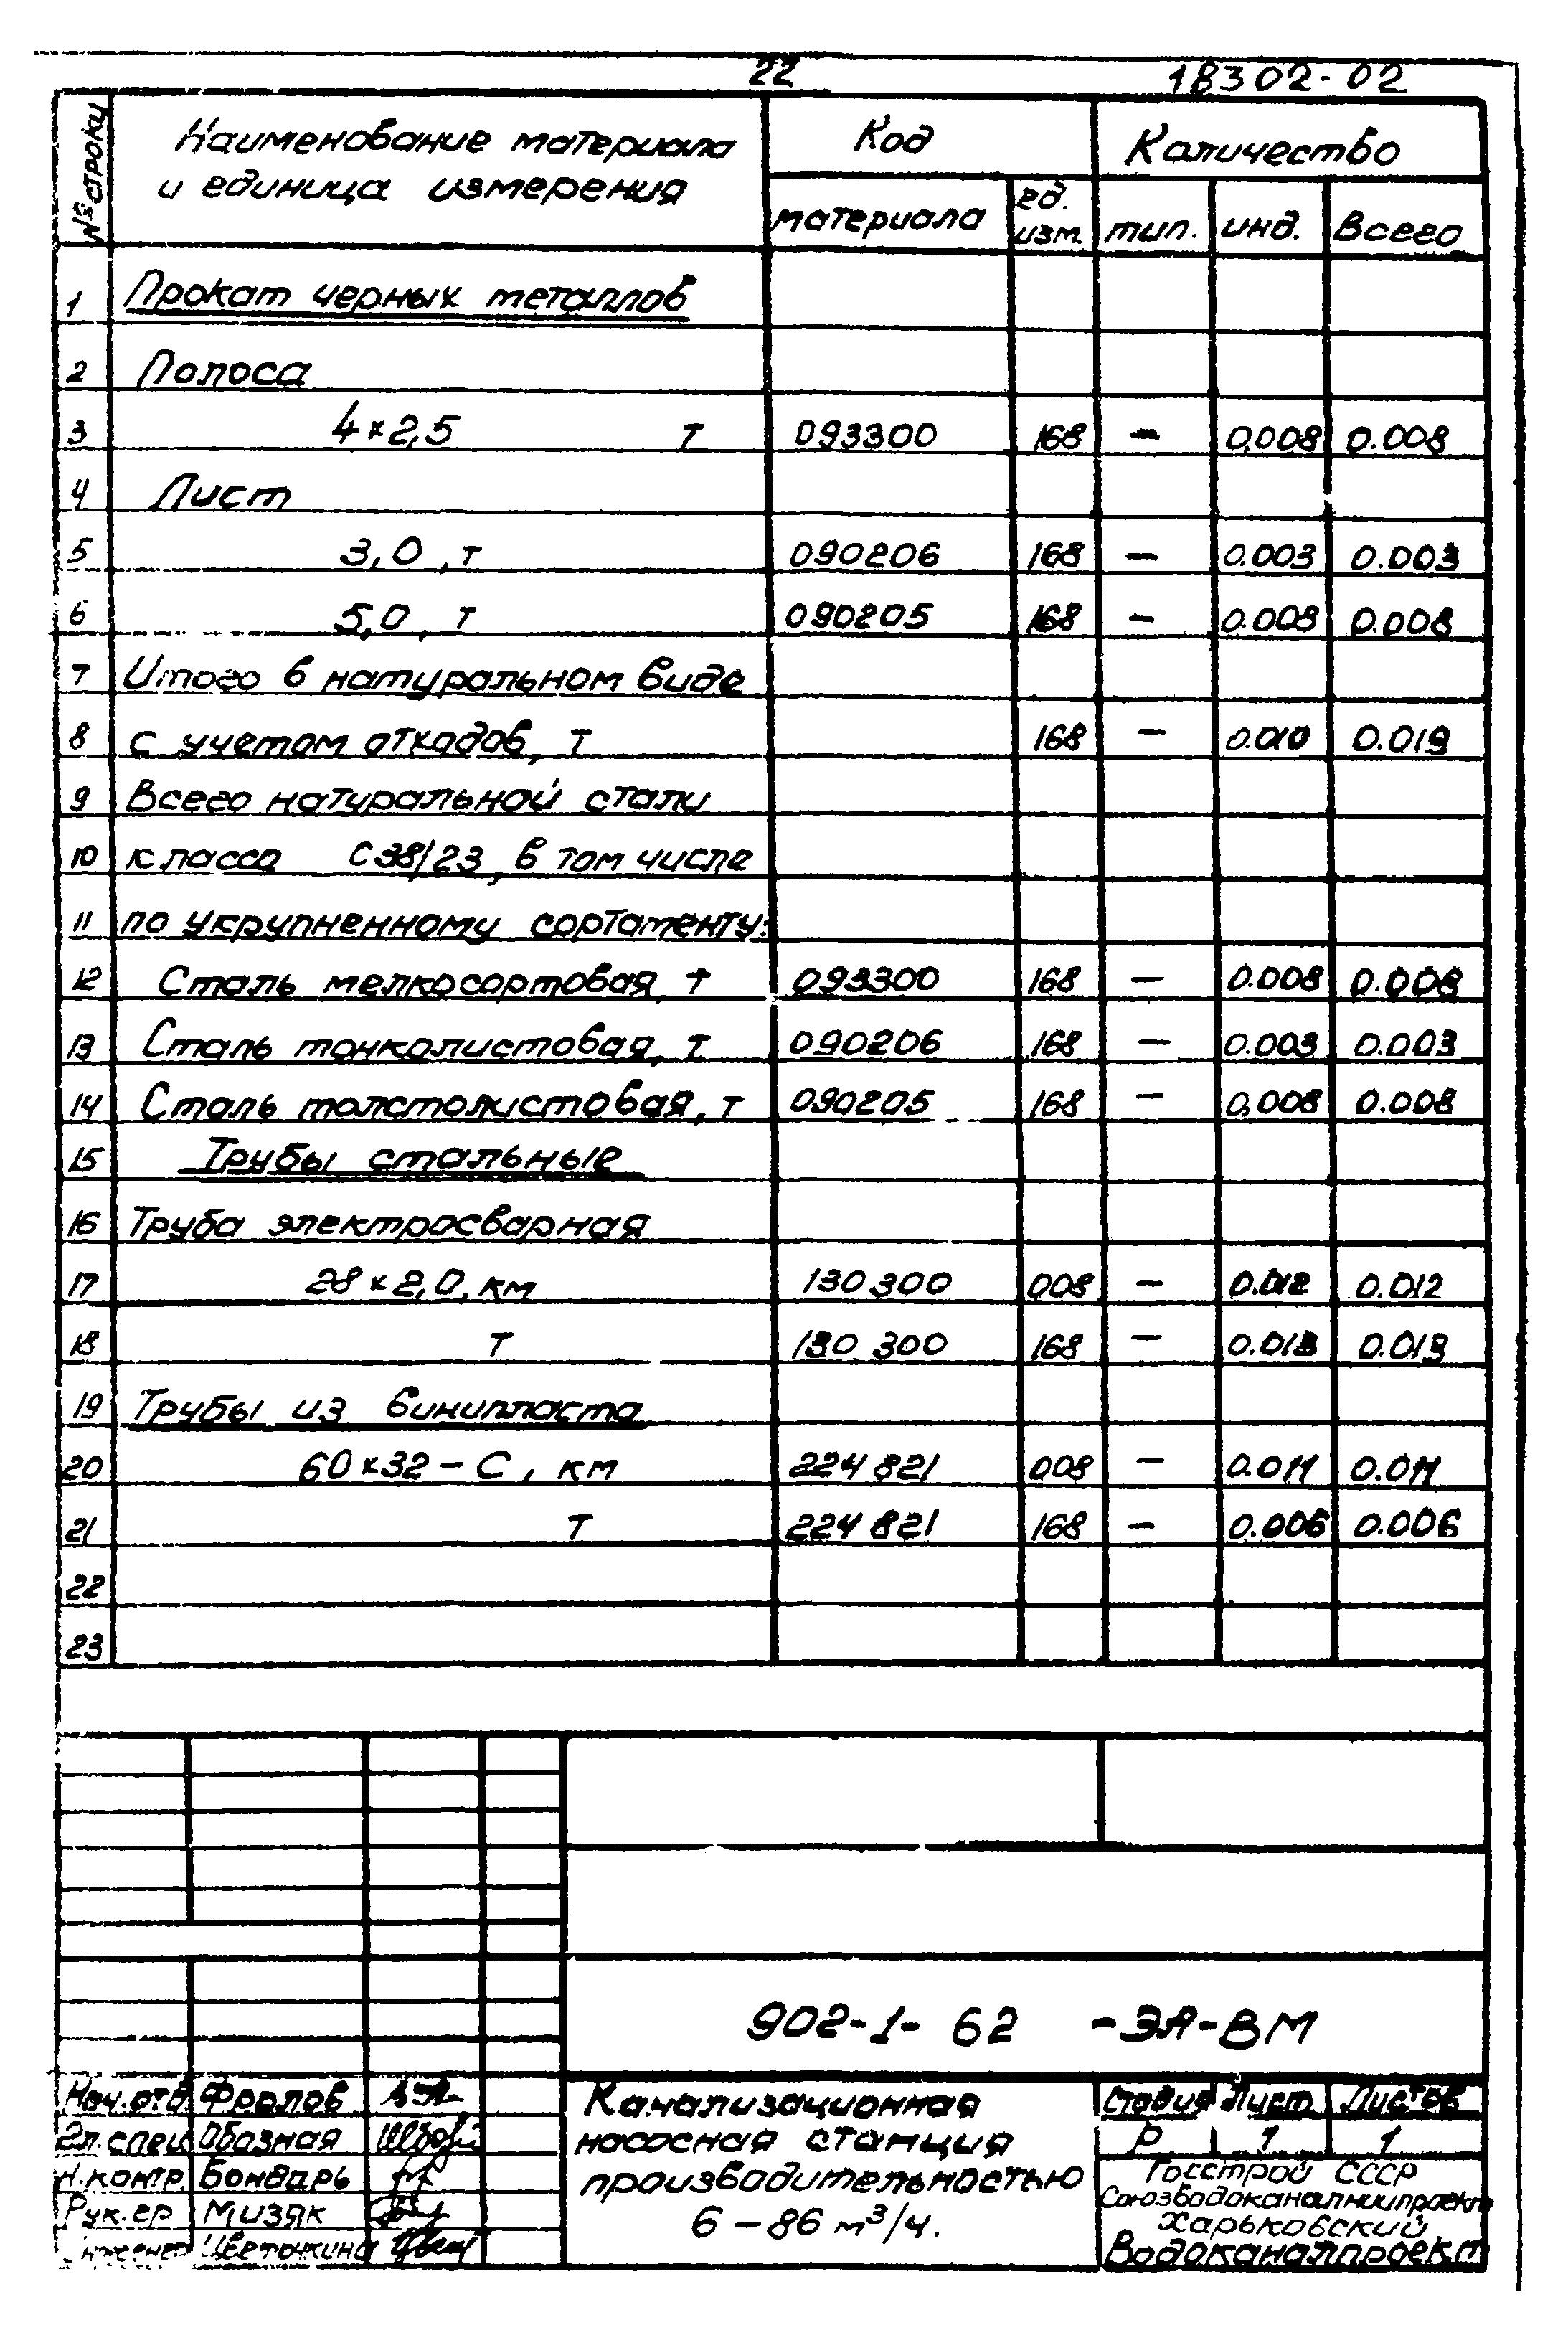 22
18302-02
№ строки
Наименование материала и единица измерения
Код
Количество
материала
ед. изм.
тип.
инд.
Всего
1 Прокат черных металлов
2 Полоса
3 4×2,5 т 093300 168 — 0,008 0.008
4 Лист
5 3,0, т 090206 168 — 0.003 0.003
6 5,0, т 090205 168 — 0.008 0.008
7 Итого в натуральном виде
8 с учетом отходов, т 168 — 0.019
9 Всего натуральной стали
10 класса С38/23, в том числе
11 по укрупненному сортаменту:
12 Сталь мелкосортовая, т 093300 168 — 0.008 0.008
13 Сталь тонколистовая, т 090206 168 — 0.003 0.003
14 Сталь толстолистовая, т 090205 168 — 0,008 0.008
15 Трубы стальные
16 Труба электросварная
17 28×2,0, км 130 300 008 — 0.012 0.012
18 т 130 300 168 — 0.013 0.013
19 Трубы из винипласта
20 60×32-С, км 224 821 008 — 0.011 0.011
21 т 224 821 168 — 0.006 0.006
22
23
902-1-62 -ЭЛ-ВМ
Нач.отд. Фролов
Гл.спец. Обазная
Н.контр. Бондарь
Рук.гр Мизяк
Инженер Цветочкина
Канализационная
насосная станция
производительностью
6-86 м³/ч.
Стадия Лист Листов
Р 1 1
Госстрой СССР
Союзводоканалниипроект
Харьковский
Водоканалпроект